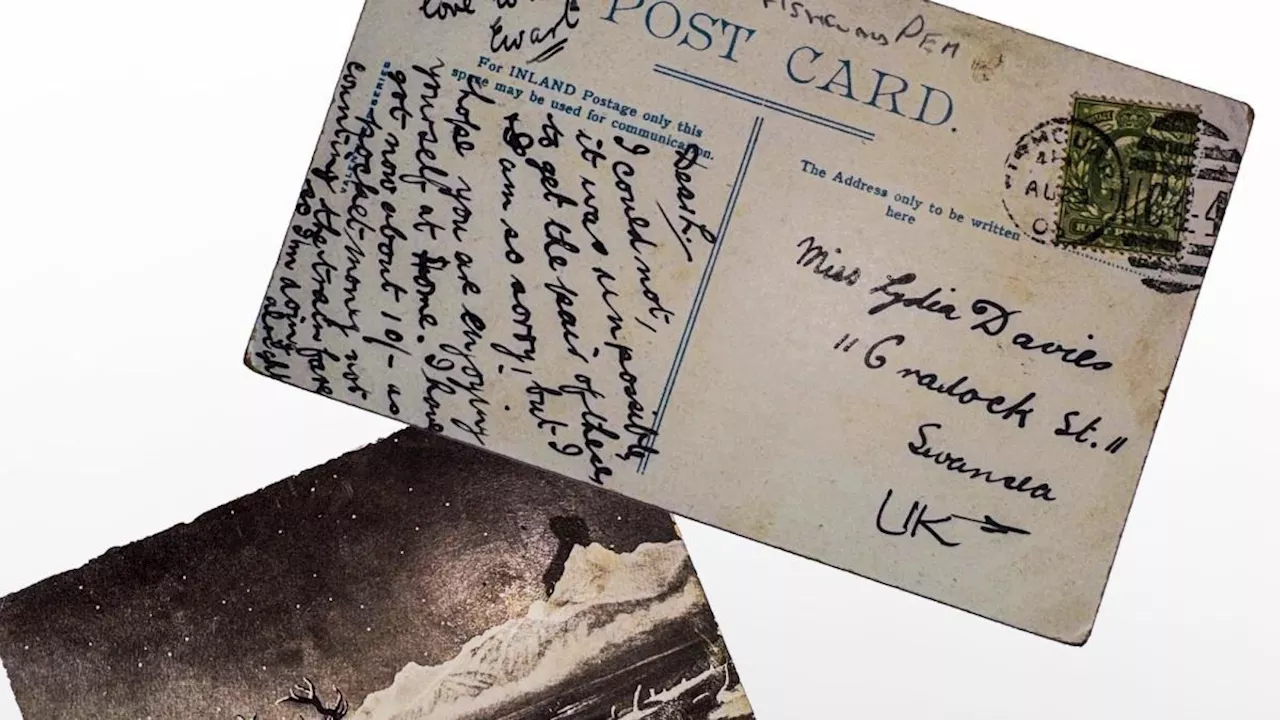 POST CARD.
For INLAND Postage only this
space may be used for communication.
The Address only to be written
here
Dear L.
I could not,
it was impossible
to get the pair of these
I am so sorry! but I
hope you are enjoying
yourself at Home. I have
got now about 10/- as
pocket-money not
counting the train fare
so I'm doing
alright
love
Ewart
Miss Lydia Davies
"Cradock St."
Swansea
UK
AU